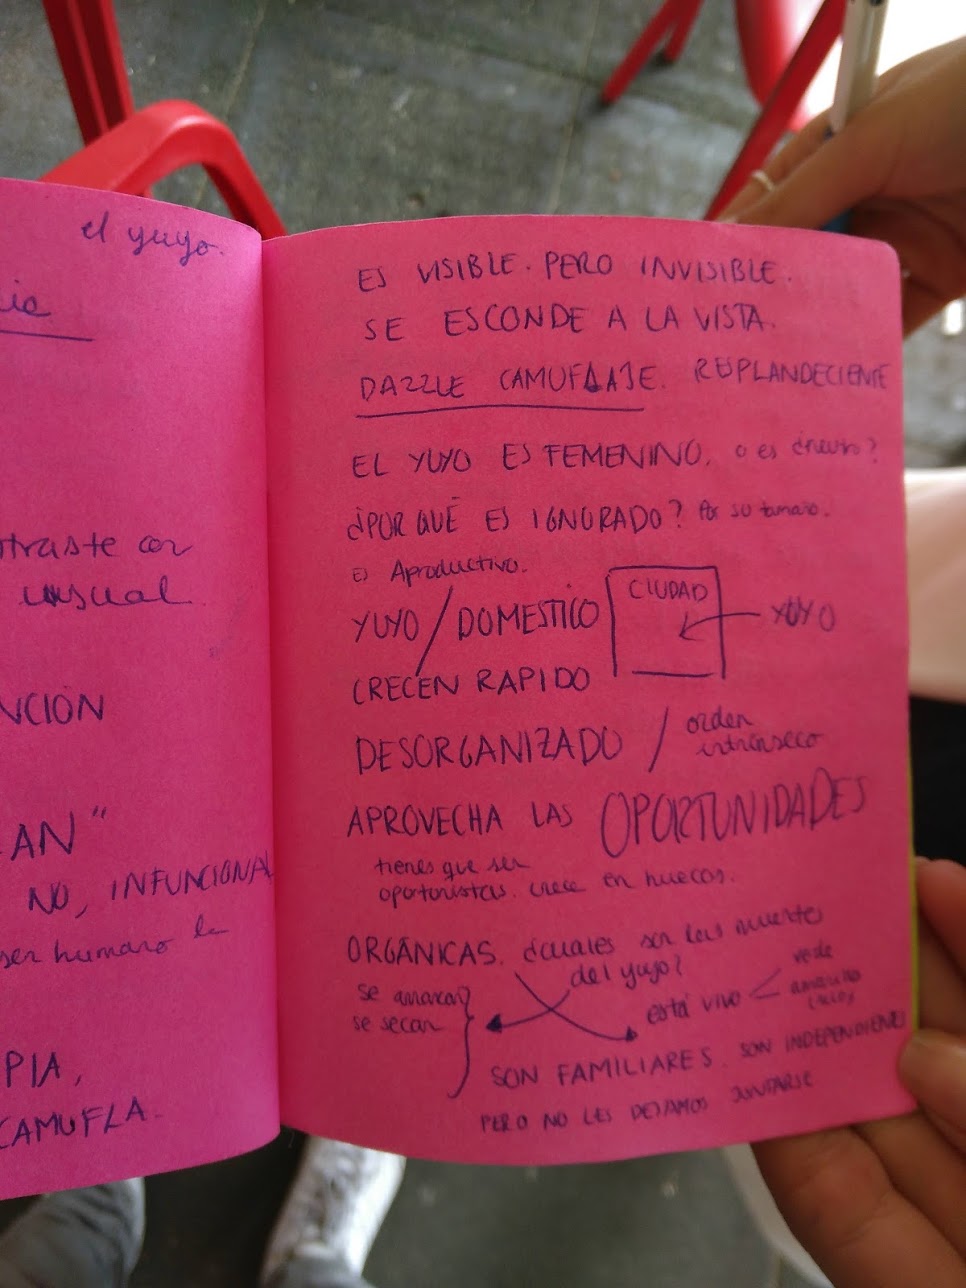 el yuyo.
ntraste con
unsual
NCIÓN
AN"
NO, INFUNCIONAL
ser humano la
PIA,
CAMUFLA.
ES VISIBLE. PERO INVISIBLE.
SE ESCONDE A LA VISTA.
DAZZLE CAMUFLAJE. REPLANDECIENTE
EL YUYO ES FEMENINO, o es
¿POR QUÉ ES IGNORADO? Por su tamaño.
es Aproductivo.
YUYO / DOMESTICO
CIUDAD
YUYO
CRECEN RAPIDO
DESORGANIZADO / orden
intrínseco
APROVECHA LAS OPORTUNIDADES
tienes que ser
oportunistas. crece en huecos.
ORGÁNICAS. ¿cuales son las muertes
del yuyo?
se arrancan
se secan
está vivo
verde
amarillo
SON FAMILIARES. SON INDEPENDIENTES
PERO NO LES DEJAMOS JUNTARSE